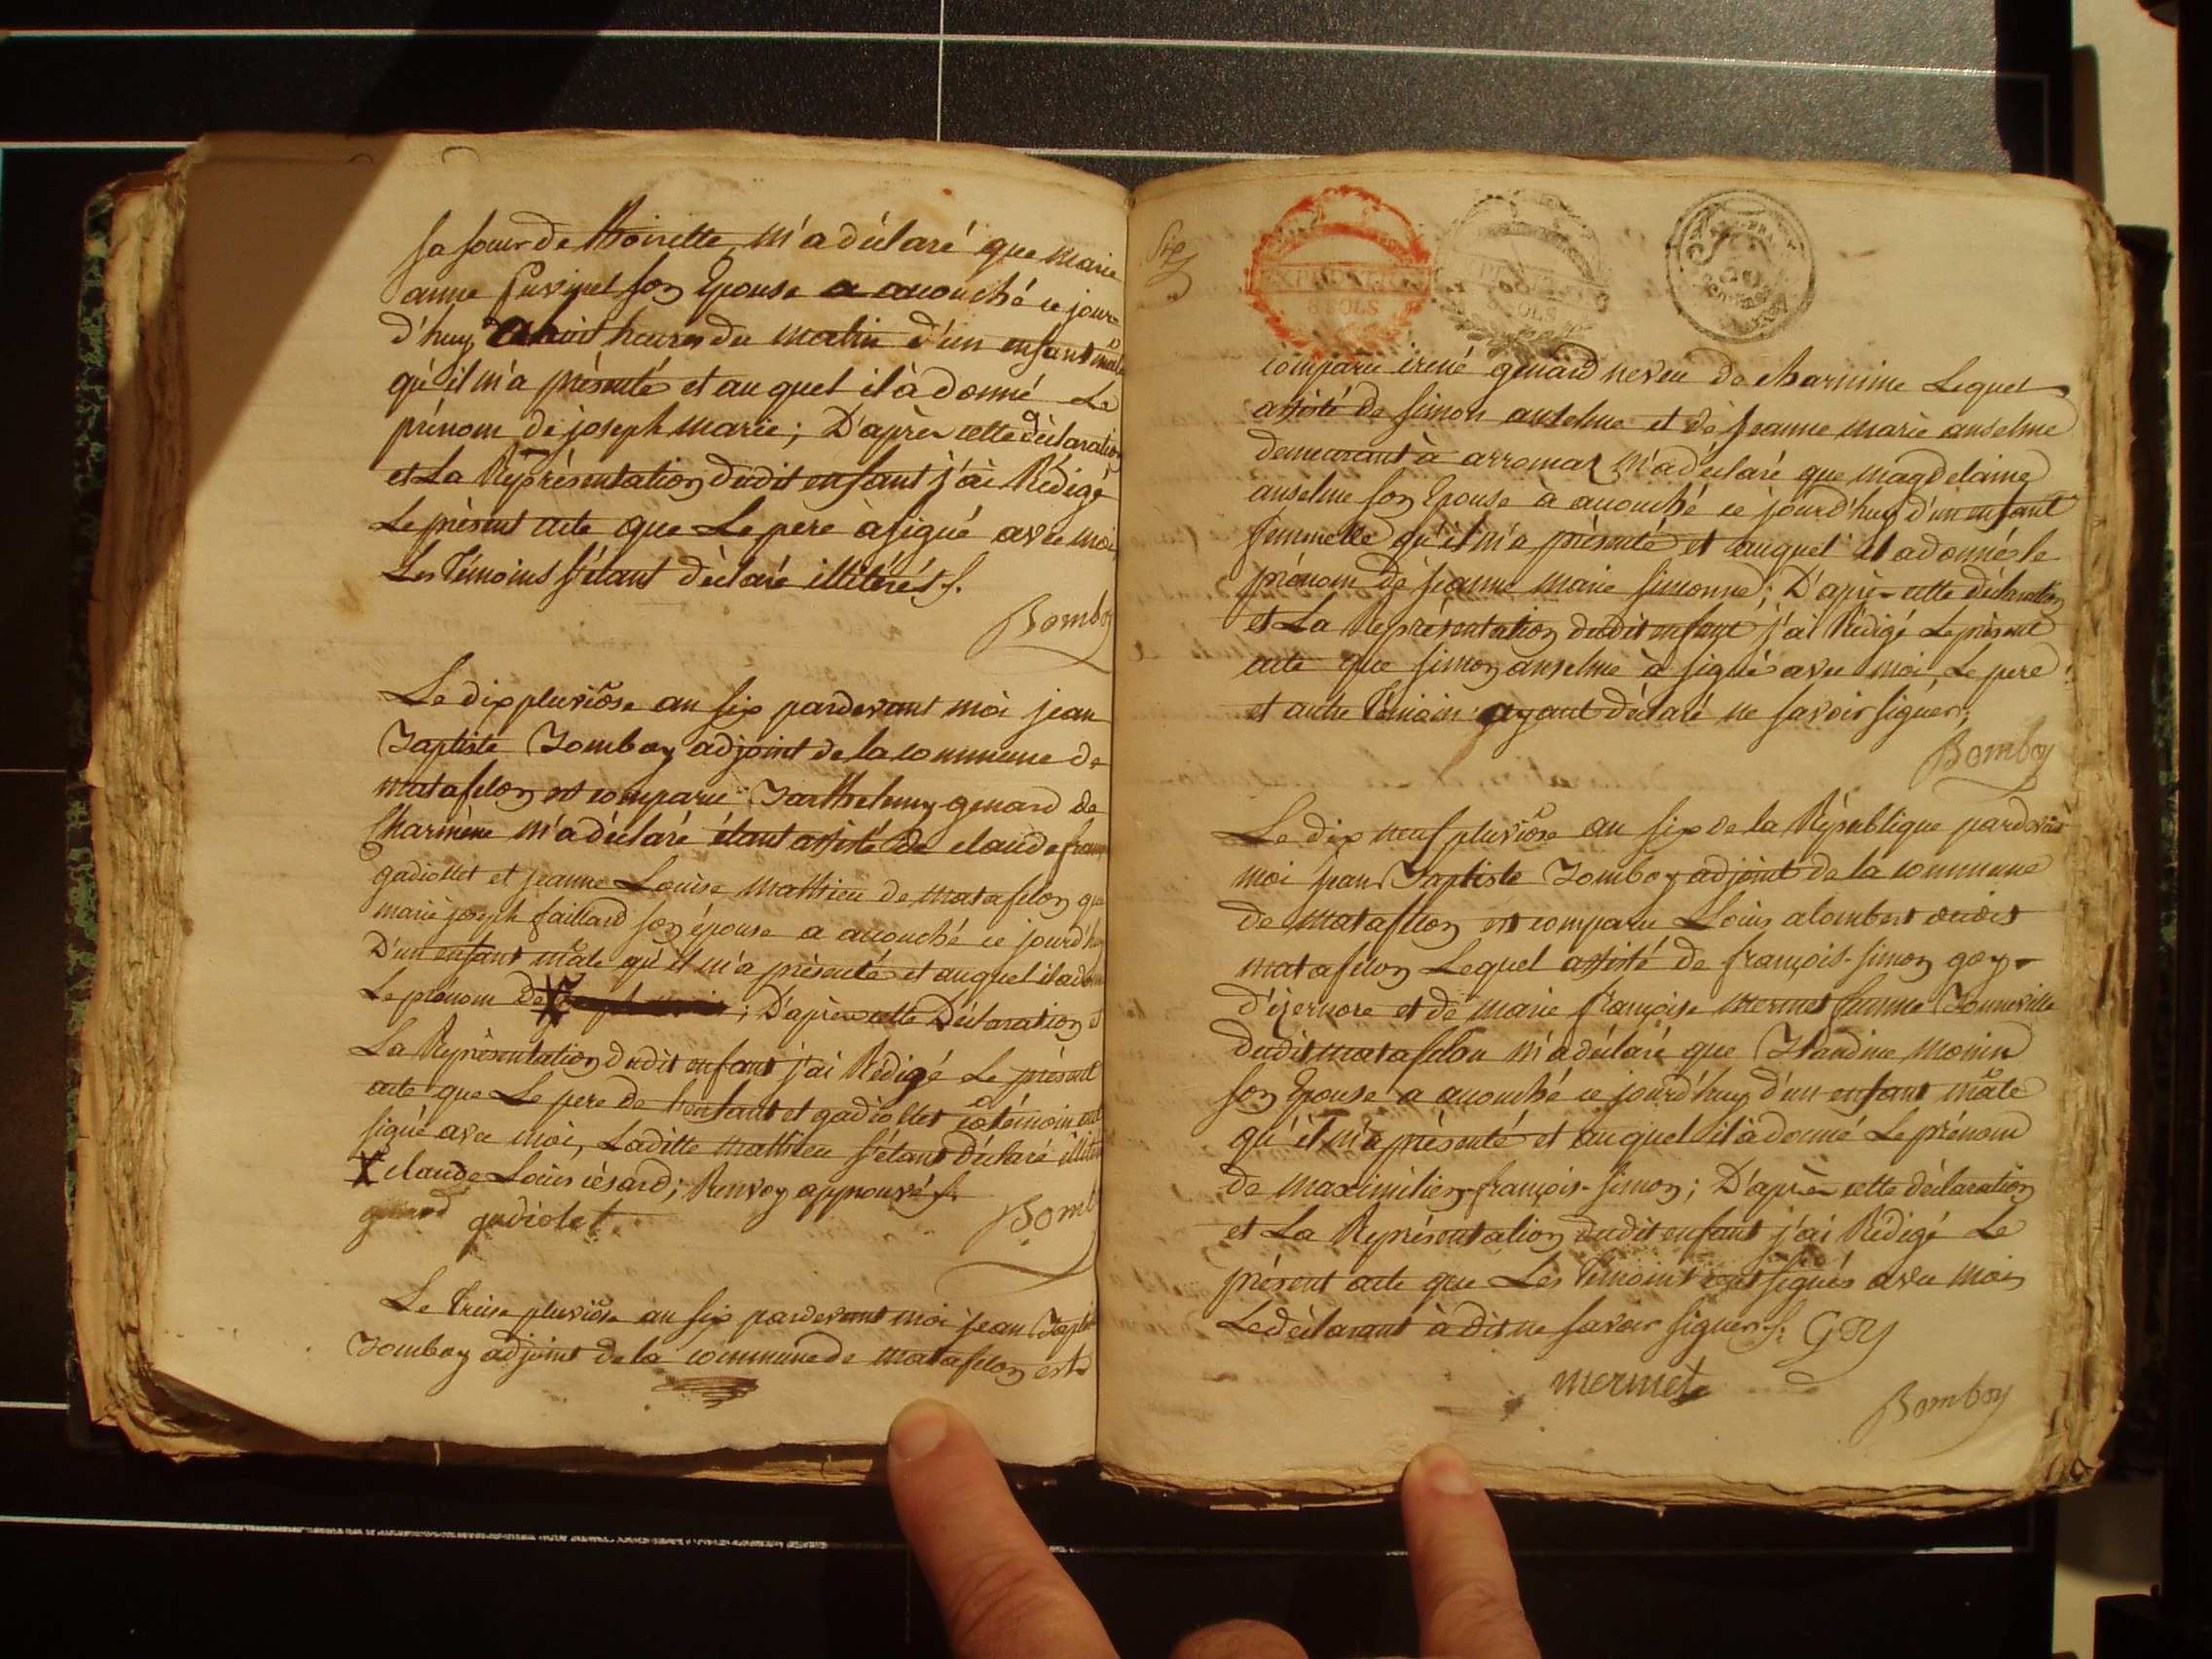 sa soeur de Thoirette, m'a déclaré que marie
anne son Epouse a acouché ce jour
d'huy a huit heures du matin d'un enfant mâle
qu'il m'a présenté et au quel il à donné Le
prénom de joseph marie; D'après cette déclaration
et La Représentation dudit enfant j'ai Rédigé
Le présent acte que Le pere à signé avec moi
Les Témoins s'étant déclaré illitérés
Bomboy
Le dix pluviôse an six pardevant moi jean
Baptiste Bomboy adjoint de la commune de
matafelon est comparu Barthelemy genard de
Charmine m'a déclaré étant assisté de claude françois
gadiollet et jeanne Louise mathieu de matafelon que
marie joseph faillard son épouse a acouché ce jourd'huy
D'un enfant mâle qu'il m'a présenté et auquel il a donné
Le prénom De X ; D'après cette Déclaration et
La Représentation dudit enfant j'ai Rédigé Le présent
acte que Le pere de l'enfant et gadiollet témoin ont
signé avec moi, Laditte mathieu s'étant déclaré
X claude Louis césard; Renvoy approuvé
genard gadiolet
Bomboy
Le Treise pluviôse an six pardevant moi jean Baptiste
Bomboy adjoint de la commune de matafelon est
Six
EXPEDITION
6 SOLS
6 SOLS
comparu irené genard neveu de charmine Lequel
assisté de simon anselme et de jeanne marie anselme
demeurant à arromas m'a déclaré que magdelaine
anselme son Epouse à acouché ce jourd'huy d'un enfant
femmelle qu'il m'a présenté et auquel il a donné le
prénom de jeanne marie simonne; D'après cette déclaration
et La Représentation dudit enfant j'ai Rédigé Le présent
acte que simon anselme à signé avec moi, Le pere
et autre Témoin ayant déclaré ne savoir signer,
Bomboy
Le dix neuf pluviôse an six de la République pardevant
moi jean Baptiste Bomboy adjoint de la commune
de matafelon est comparu Louis alombert dudit
matafelon Lequel assisté de françois-simon goy
d'izernore et de marie françoise mermet femme Bonneville
dudit matafelon m'a déclaré que Blandine monin
son Epouse a acouché ce jourd'huy d'un enfant mâle
qu'il m'a présenté et auquel il à donné Le prénom
de maximilien-françois-simon; D'après cette déclaration
et La Représentation dudit enfant j'ai Rédigé Le
présent acte que Les Témoins ont signés avec moi
Le déclarant à dit ne savoir signer. Goy
mermet
Bomboy